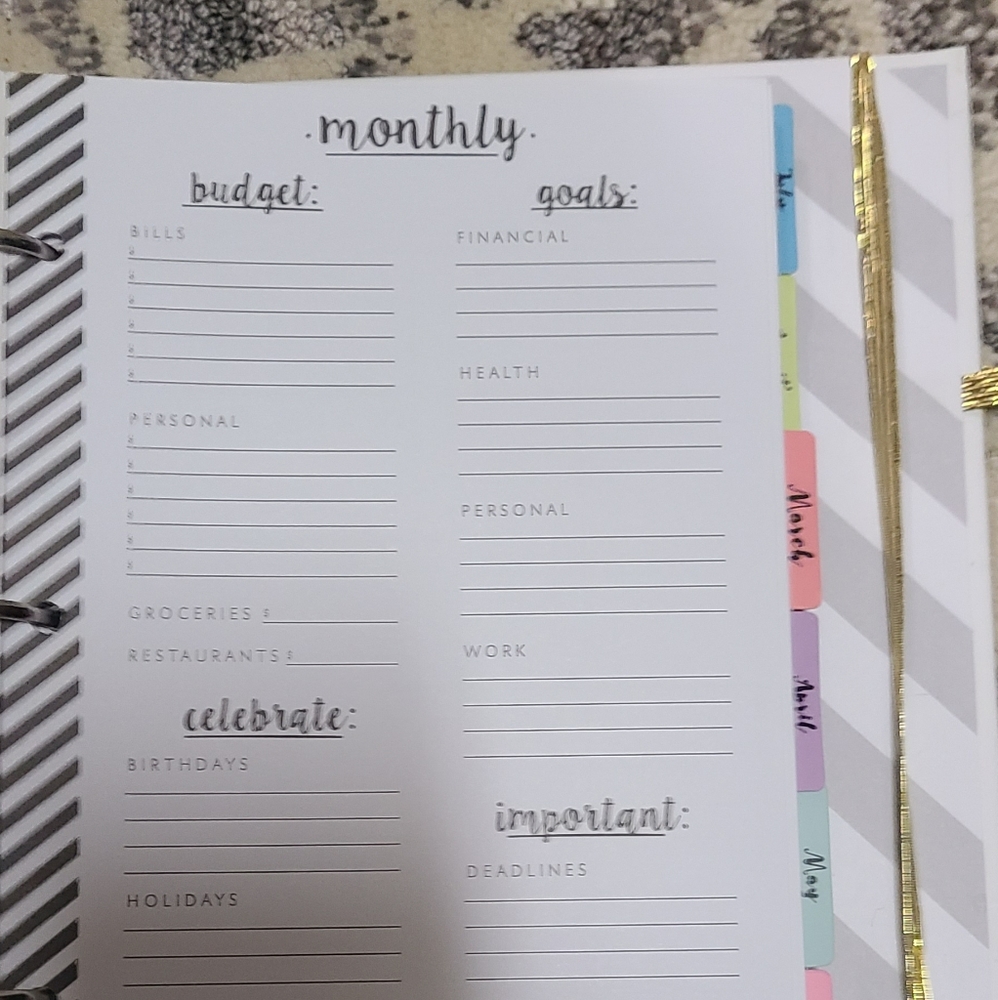 · monthly ·
budget:
BILLS
$
$
$
$
$
$
PERSONAL
$
$
$
$
$
$
GROCERIES $
RESTAURANTS $
celebrate:
BIRTHDAYS
HOLIDAYS
goals:
FINANCIAL
HEALTH
PERSONAL
WORK
important:
DEADLINES
March
April
May